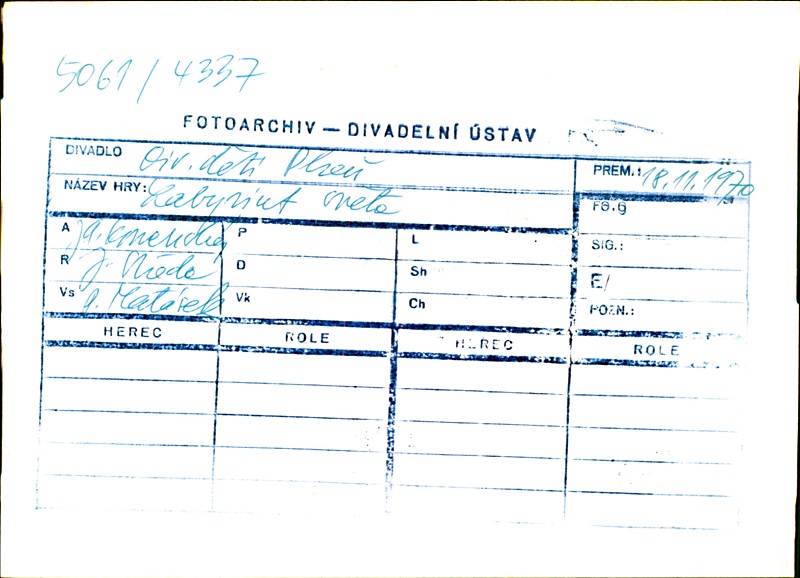 5061 / 4337
FOTOARCHIV — DIVADELNÍ ÚSTAV
DIVADLO Div. dětí Plzeň PREM.: 18.11.1970
NÁZEV HRY: Labyrint světa FO.g
A J. A. Komenský P L SIG.:
R J. Středa D Sh E/
Vs P. Matásek Vk Ch POZN.:
HEREC ROLE HEREC ROLE